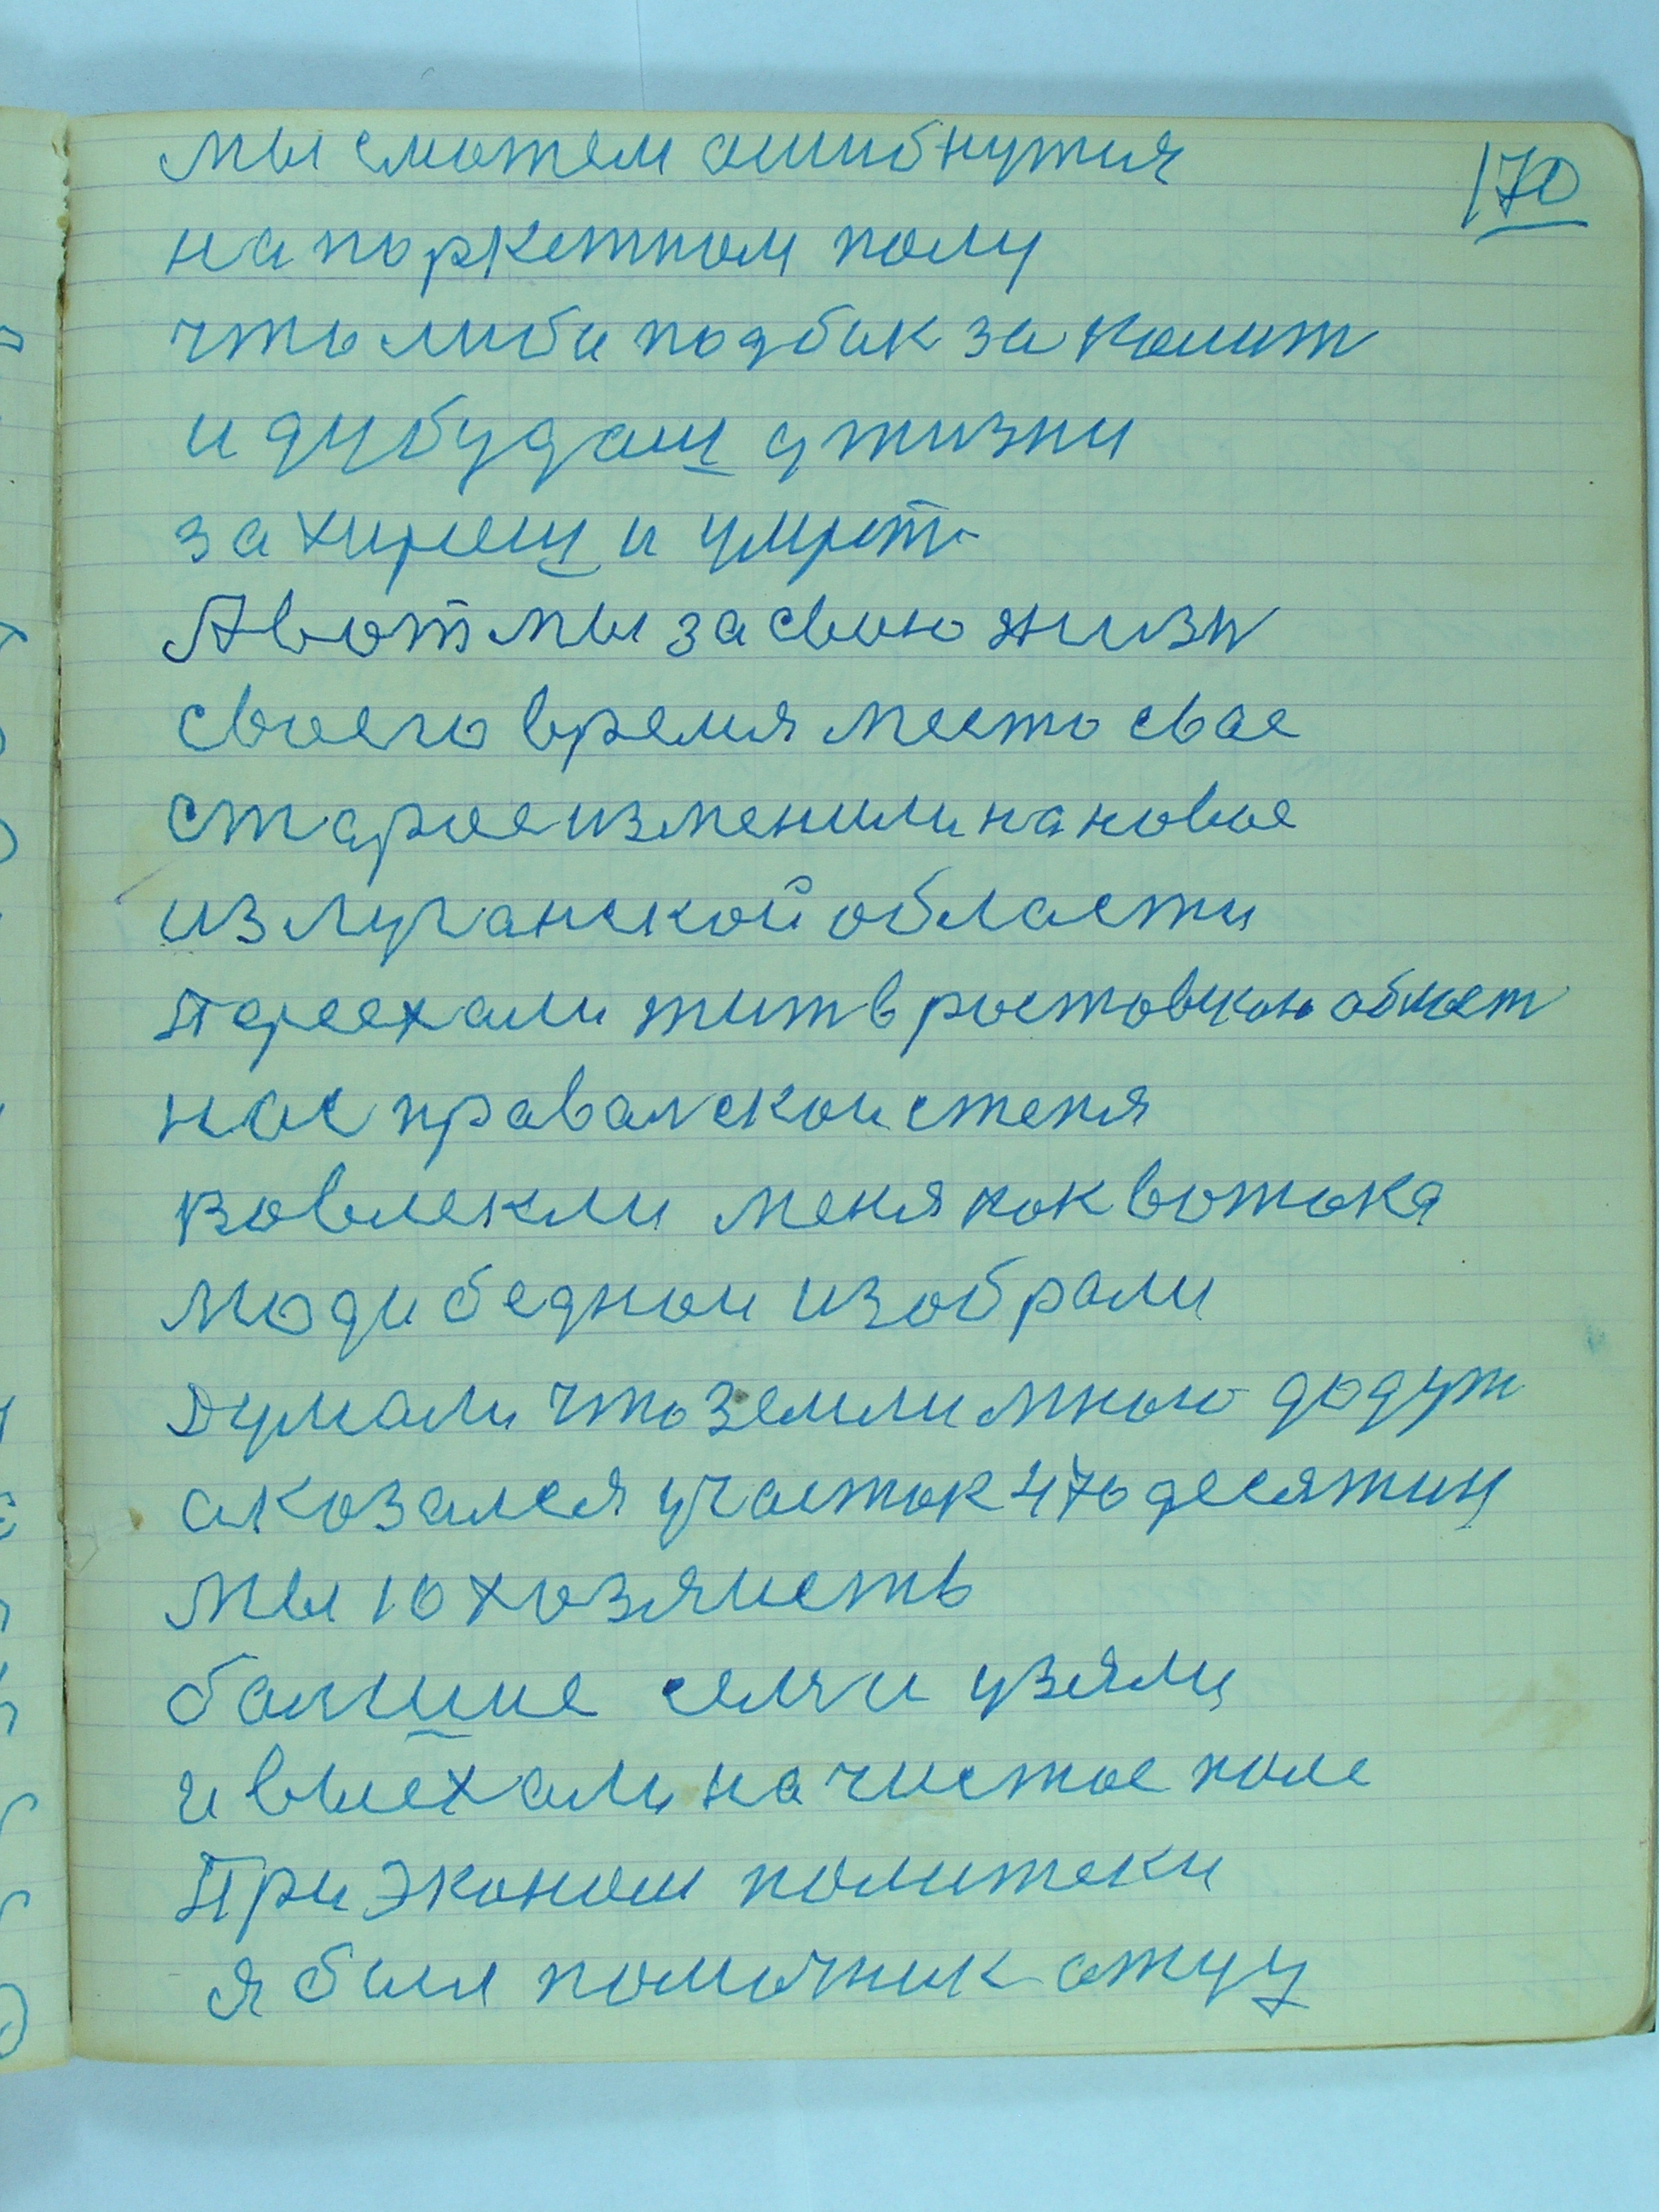 170
мы сможем ошибнутия
на поркетном полу
что либи подбик за колит
и дубудаш у жизни
за хиреш и умрет
А вот мы за свою жизн
своего время место свае
старое изменили на новое
из луганской области
Переехали жит в ростовскою област
нас правалскои степя
вовлекли меня как вотока
моди беднои изобрали
Думали что земли много дадут
аказался участок 476 десятин
мы 10 хозяиств
балшие семи узяли
и выехали на чистое поле
При эконом политеки
я были помочник отцу